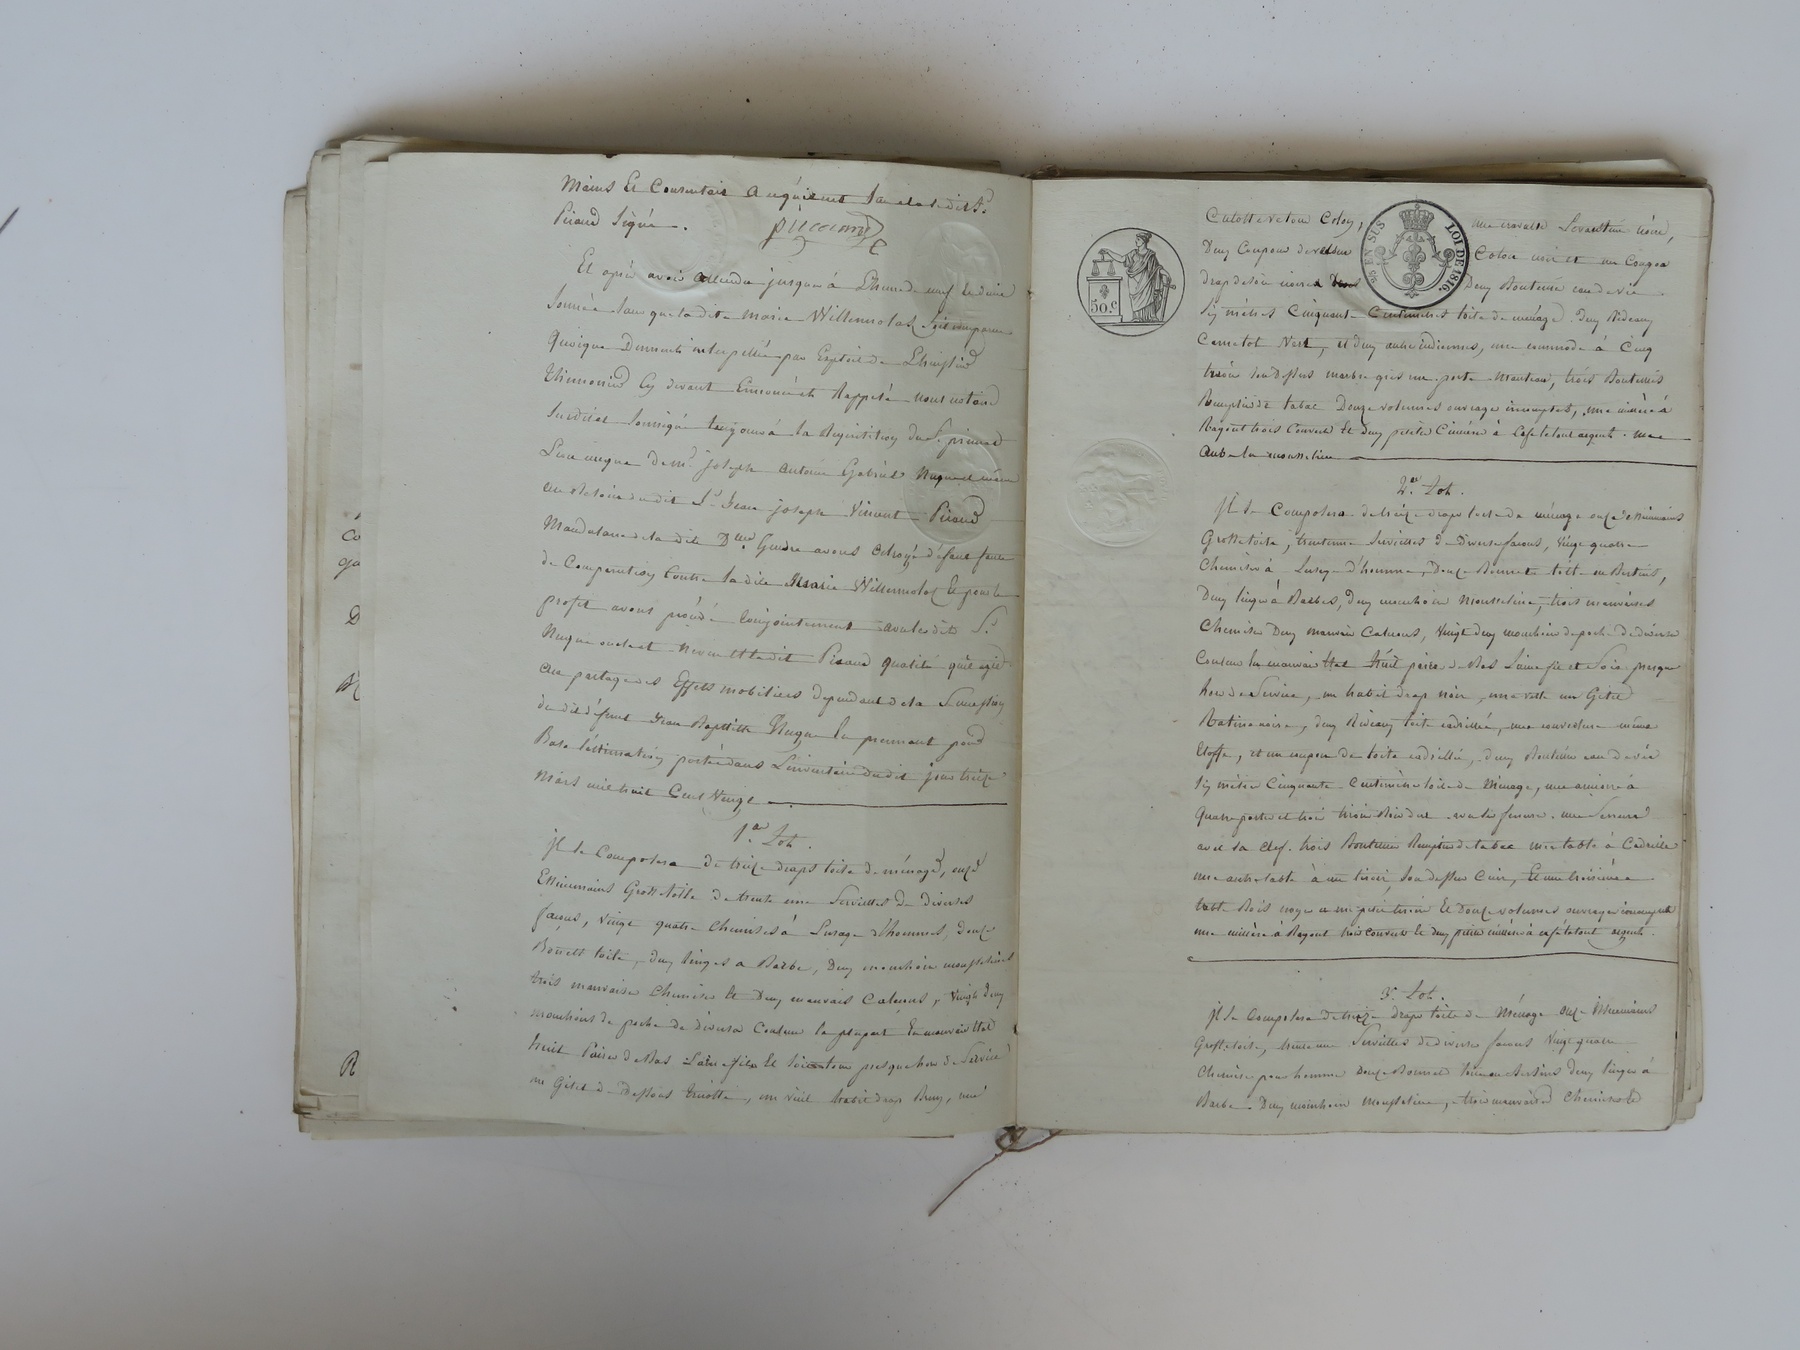 mains Et Consentait a ledit Sr
Picaud Signé.
Et après avoir attendu jusques à L'heure de neuf de
Sans que la dite Marie Willermoloz Soit comparue
quoique Dument interpellée par Exploit de L'huissier
Thimonier Cy devant Enoncé et Rappelé nous notaire
Susdit et Soussigné toujours à la Réquisition du Sr
L'un de Mr. joseph antoine Gabriel Nuque
dudit Sr. Jean joseph Vincent Picaud
Mandataire de la dite Dme avons octroyé défaut faute
de Comparution Contre la dite Marie Willermoloz Et pour le
profit avons procédé Conjointement avec ledit Sr.
Nuque oncle et neveu Et ledit Picaud qualité qu'il agit
au partage des Effets mobiliers dependant de la Succession
du dit défunt Jean Baptiste Nuque En prenant pour
Base l'estimation portée dans L'inventaire dudit jour treize
Mars mil huit Cent Vingt
1er Lot.
jl Se Composera de treize draps toile de ménage, onze
Essuiemains Grosse toile de trente une Serviettes De diverses
façons, Vingt quatre Chemises à L'usage d'hommes, Douze
Bonnets toile, deux linges a Barbe, Deux mouchoirs mousseline
trois mauvaises Chemises Et Deux mauvais Calecons, Vingt Deux
mouchoirs de poche de diverses Couleur la plupart En mauvais Etat
huit Paires de Bas Laine fil Et Soie presque hors de Service
un Gilet de dessous tricotté, un vieil habit drap Brun, une
50.c
25c EN SUS
LOI DE 1816.
Culotte velour Coton, une cravatte Levantine noire,
Deux Coupons de velour Coton noir et un Coupon
drap de Deux Bouteilles eau de vie
Six mètres Cinquante Centimètres toile de ménage. Deux Rideaux
Camelot Vert, et deux autres indiennes, une commode à Cinq
tiroirs Son dessus marbre gris un porte Manteau, trois Bouteilles
Remplies de tabac Douze volumes ouvrage incomplets, une cuillère à
Ragout trois Couverts Et deux petites Cuillères à Caffé le tout argent. une
Aube en mousseline
2e. Lot.
jl Se Composera de treize draps toile de ménage onze Essuiemains
Grosse toile, trente une Serviettes de Diverses facons, Vingt quatre
Chemises à L'usage d'homme, Douze Bonnets toile ou Bazins,
Deux linges à Barbes, deux mouchoirs Mousseline, trois mauvaises
Chemises Deux mauvais Calecons, Vingt deux mouchoirs de poche de diverses
Couleur En mauvais Etat huit paires de Bas Laine fil et Soie presque
hors de Service, un habit drap noir, une veste un Gilet
Ratine noire, deux Rideaux toile cadrillée, une couverture même
Etoffe, et un coupon de toile cadrillée, deux Bouteilles eau de vie
Six mètres Cinquante Centimètres toile de Ménage, une armoire à
quatre portes et trois tiroirs Bois dur avec Sa ferrure. une Serrure
avec sa clef. trois Bouteilles Remplies de tabac une table à Cadrille
une autre table à un tiroir, Son dessus Cuir, Et une troisième
table Bois noyer a un petit tiroir Et Douze volumes ouvrages incomplets
une cuillère à Ragout trois couverts Et deux petites cuillères à caffé le tout argent.
3e. Lot.
jl Se Composera de treize draps toile de Ménage onze Essuiemains
Grosse toile, trente une Serviettes de diverses facons Vingt quatre
Chemises pour homme Douze Bonnets toile ou Bazins deux linges à
Barbe. Deux mouchoirs Mousseline, trois mauvaises Chemises Et